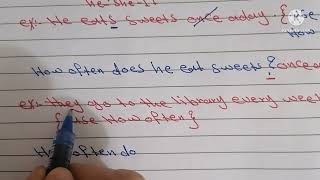 he. she. it
ex: he eats sweets once a day. {use
How
How often does he eat sweets {once a
ex: they go to the library every week
{use How often}
How often do